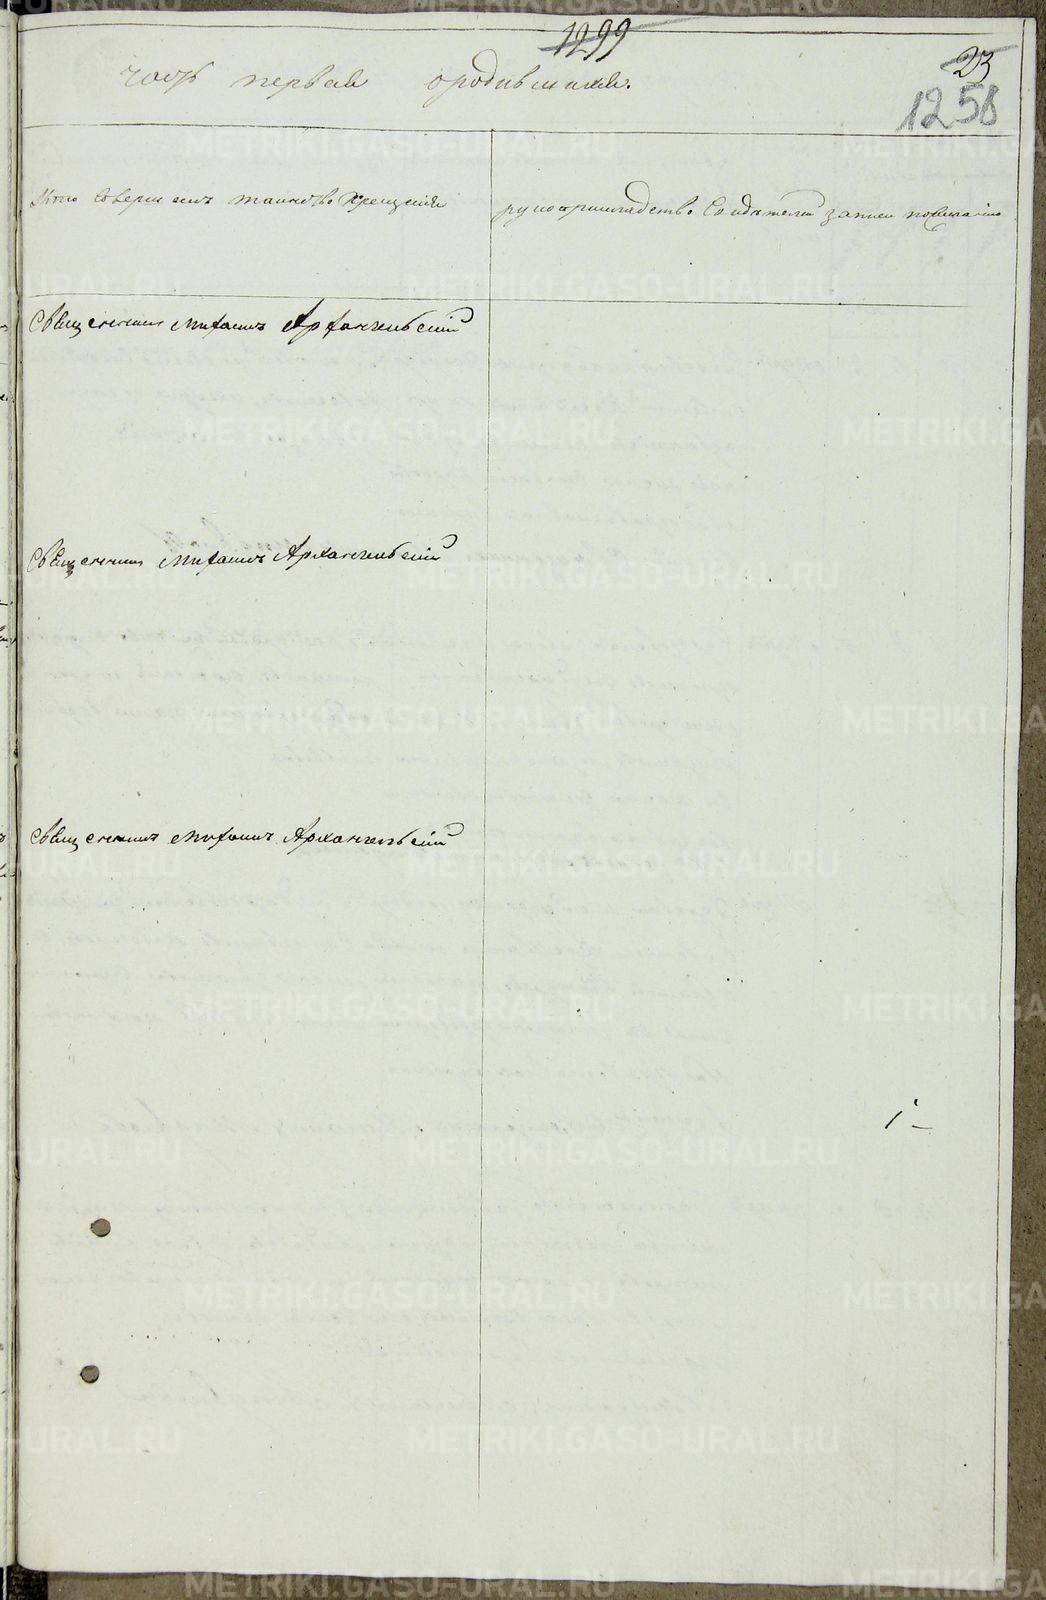 1299
23
часть первая о родившихся.
1258
Кто совершал таинство крещения
рукоприкладство свидетелей записи по желанию
Священник Михаил Архангельский
Священник Михаил Архангельский
Священник Михаил Архангельский
METRIKI.GASO-URAL.RU